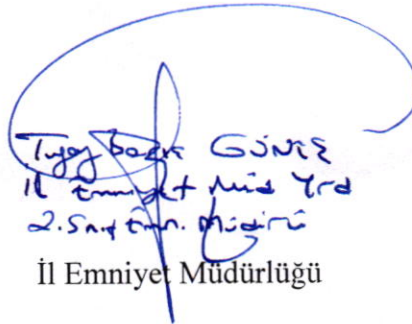 GÜNEŞ
İl Emniyet Müd Yrd
2. Sınıf Emn. Müdürü
İl Emniyet Müdürlüğü